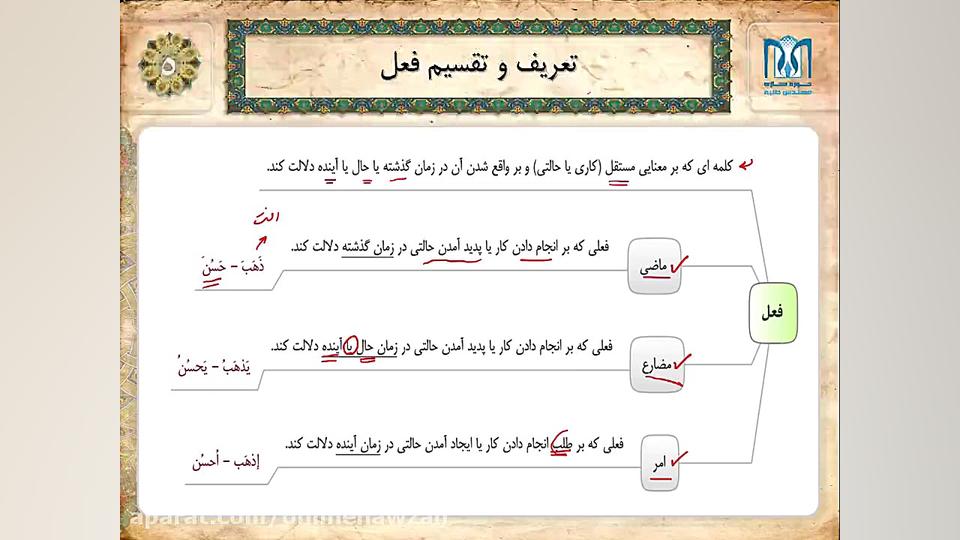 تعریف و تقسیم فعل
۵
حوزه سازه
مهندس طلبه
کلمه ای که بر معنایی مستقل (کاری یا حالتی) و بر واقع شدن آن در زمان گذشته یا حال یا آینده دلالت کند.
فعل
ماضی
فعلی که بر انجام دادن کار یا پدید آمدن حالتی در زمان گذشته دلالت کند.
ذَهَبَ – حَسُنَ
مضارع
فعلی که بر انجام دادن کار یا پدید آمدن حالتی در زمان حال یا آینده دلالت کند.
یَذهَبُ – یَحسُنُ
امر
فعلی که بر طلب انجام دادن کار یا ایجاد آمدن حالتی در زمان آینده دلالت کند.
إذهَب – اُحسُن